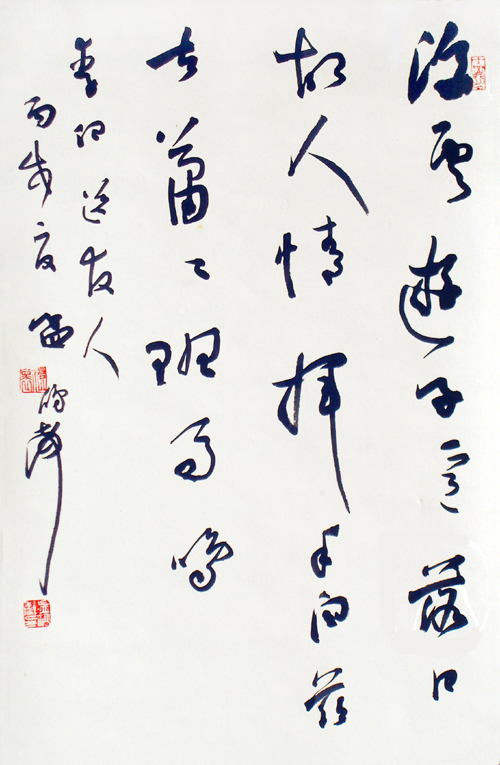 浮雲遊子意落日
故人情揮手自茲
去蕭〻班馬鳴
李白送友人
丙戌夏孟